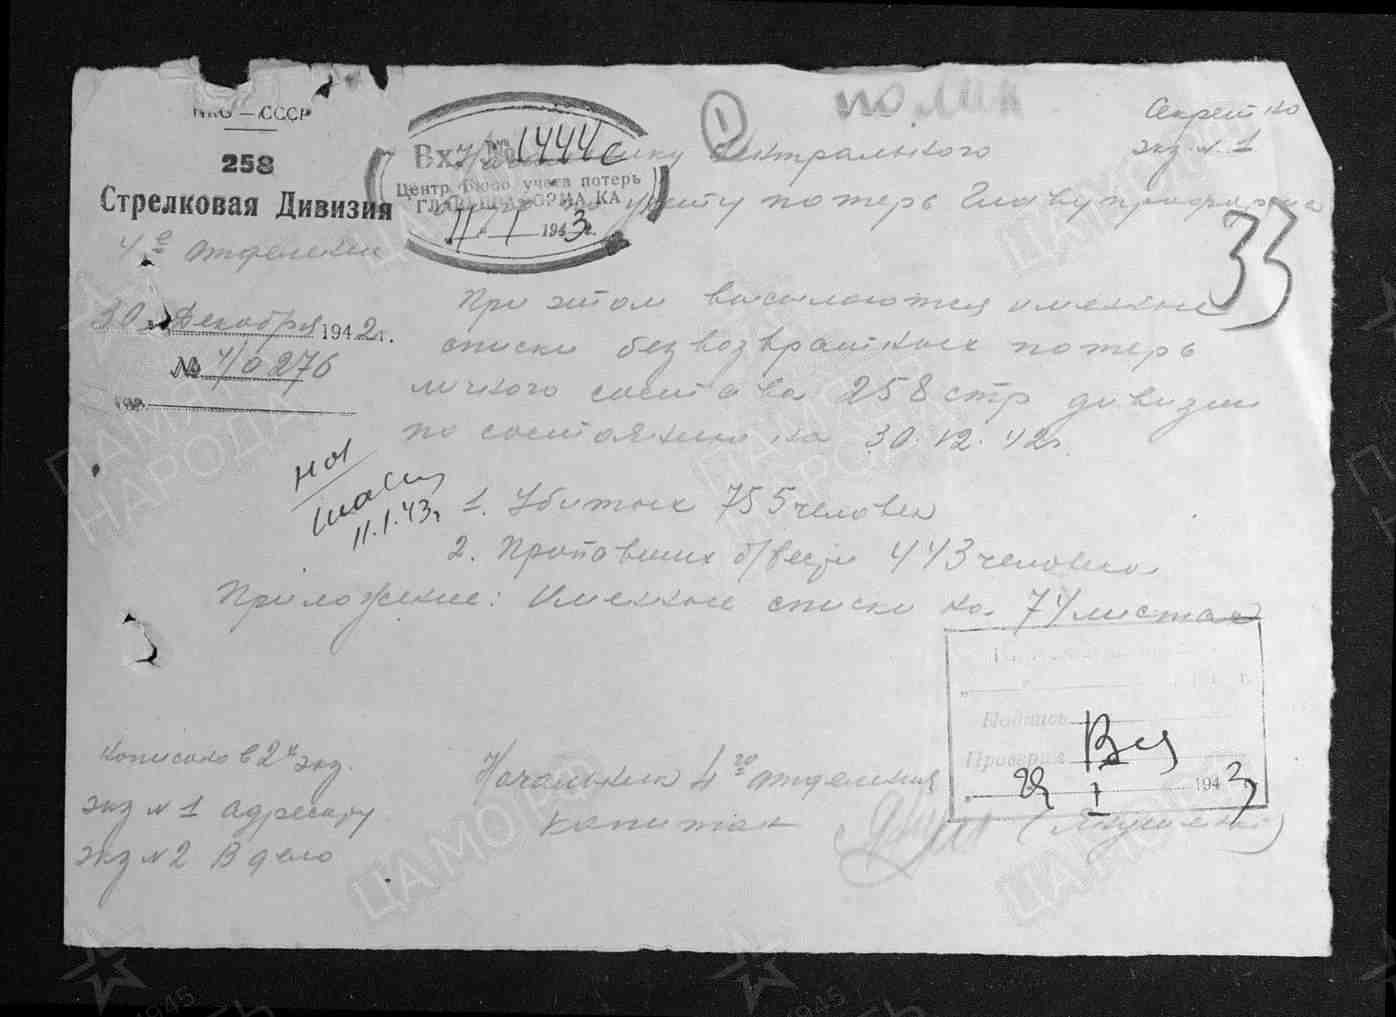 НКО — СССР
258
Стрелковая Дивизия
4е отделение
30 Декабря 1942г.
№ 4/0276
Вх 1444с
Центр. Бюро учета потерь
11 I 1943г.
Секретно
экз. № 1
Центрального
учету потерь Главупраформа
33
При этом высылаются именные
списки безвозвратных потерь
личного состава 258 стр дивизии
по состоянию на 30.12.42г.
1. Убитых 755 человек
2. Пропавших б/вести 443 человека
Приложение: Именные списки на 74 листах
11.1.43г
Подпись
Проверил
I 1943
Начальник 4го отделения
капитан
Написано в 2х экз.
экз № 1 адресату
экз № 2 В дело
ПАМЯТЬ НАРОДА
ЦАМО РФ
1945